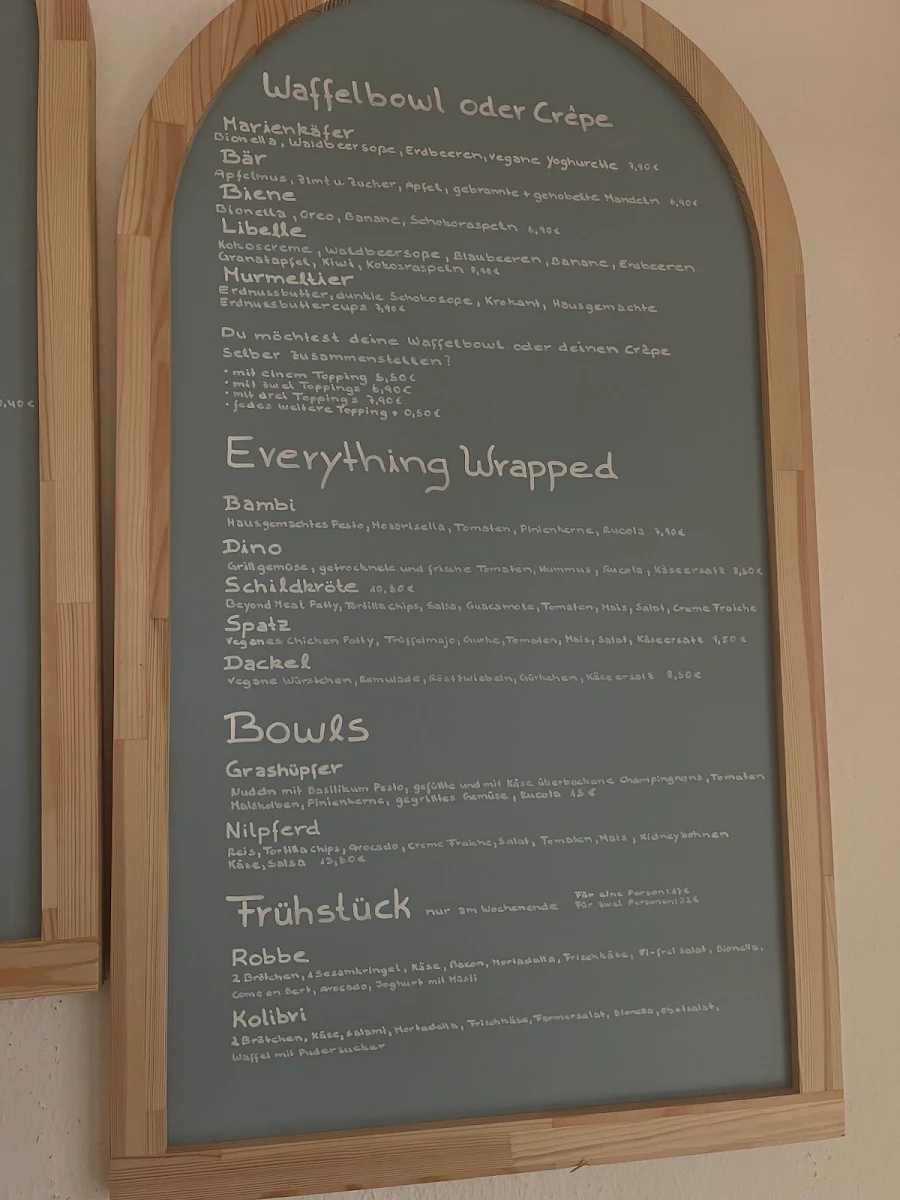 Waffelbowl oder Crêpe
Marienkäfer
Bionella, Waldbeersoße, Erdbeeren, vegane Yoghurette 7,90€
Bär
Apfelmus, Zimt u. Zucher, Apfel, gebrannte + gehobelte Mandeln 6,90€
Biene
Bionella, Oreo, Banane, Schokoraspeln 6,90€
Libelle
Kokoscreme, Waldbeersoße, Blaubeeren, Banane, Erdbeeren
Granatapfel, Kiwi, Kokosraspeln 8,40€
Murmeltier
Erdnussbutter, dunkle Schokosoße, Krokant, Hausgemachte
Erdnussbuttercups 7,90€
Du möchtest deine Waffelbowl oder deinen Crêpe
Selber zusammenstellen?
• mit einem Topping 5,50€
• mit zwei Toppings 6,90€
• mit drei Topping's 7,90€
• jedes weitere Topping + 0,50€
0,40€
Everything Wrapped
Bambi
Hausgemachtes Pesto, Mozarisella, Tomaten, Pinienkerne, Rucola 7,90€
Dino
Grillgemüse, getrocknete und frische Tomaten, Hummus, Rucola, Käseersatz 8,50€
Schildkröte 10,50€
Beyond Meat Patty, Tortilla chips, Salsa, Guacamole, Tomaten, Mais, Salat, Creme Fraiche
Spatz
Veganes Chicken Patty, Trüffelmajo, Gurke, Tomaten, Mais, Salat, Käseersatz 9,50€
Dackel
Vegane Würstchen, Remulade, Röstzwiebeln, Gürkchen, Käseersatz 8,50€
Bowls
Grashüpfer
Nudeln mit Basilikum Pesto, gefüllte und mit Käse überbackene Champingnons, Tomaten
Maiskolben, Pinienkerne, gegrilltes Gemüse, Rucola 15€
Nilpferd
Reis, Tortilla Chips, Avocado, Creme Fraiche, Salat, Tomaten, Mais, Kidneybohnen
Käse, Salsa 13,50€
Frühstück nur am Wochenende
Für eine Person: 17€
Für zwei Personen: 32€
Robbe
2 Brötchen, 1 Sesamkringel, Käse, Bacon, Mortadella, Frischkäse, Ei-frei Salat, Bionella,
Come en Bert, Avocado, Joghurt mit Müsli
Kolibri
2 Brötchen, Käse, Salami, Mortadella, Frischkäse, Farmersalat, Bionella, Obstsalat,
Waffel mit Puderzucker